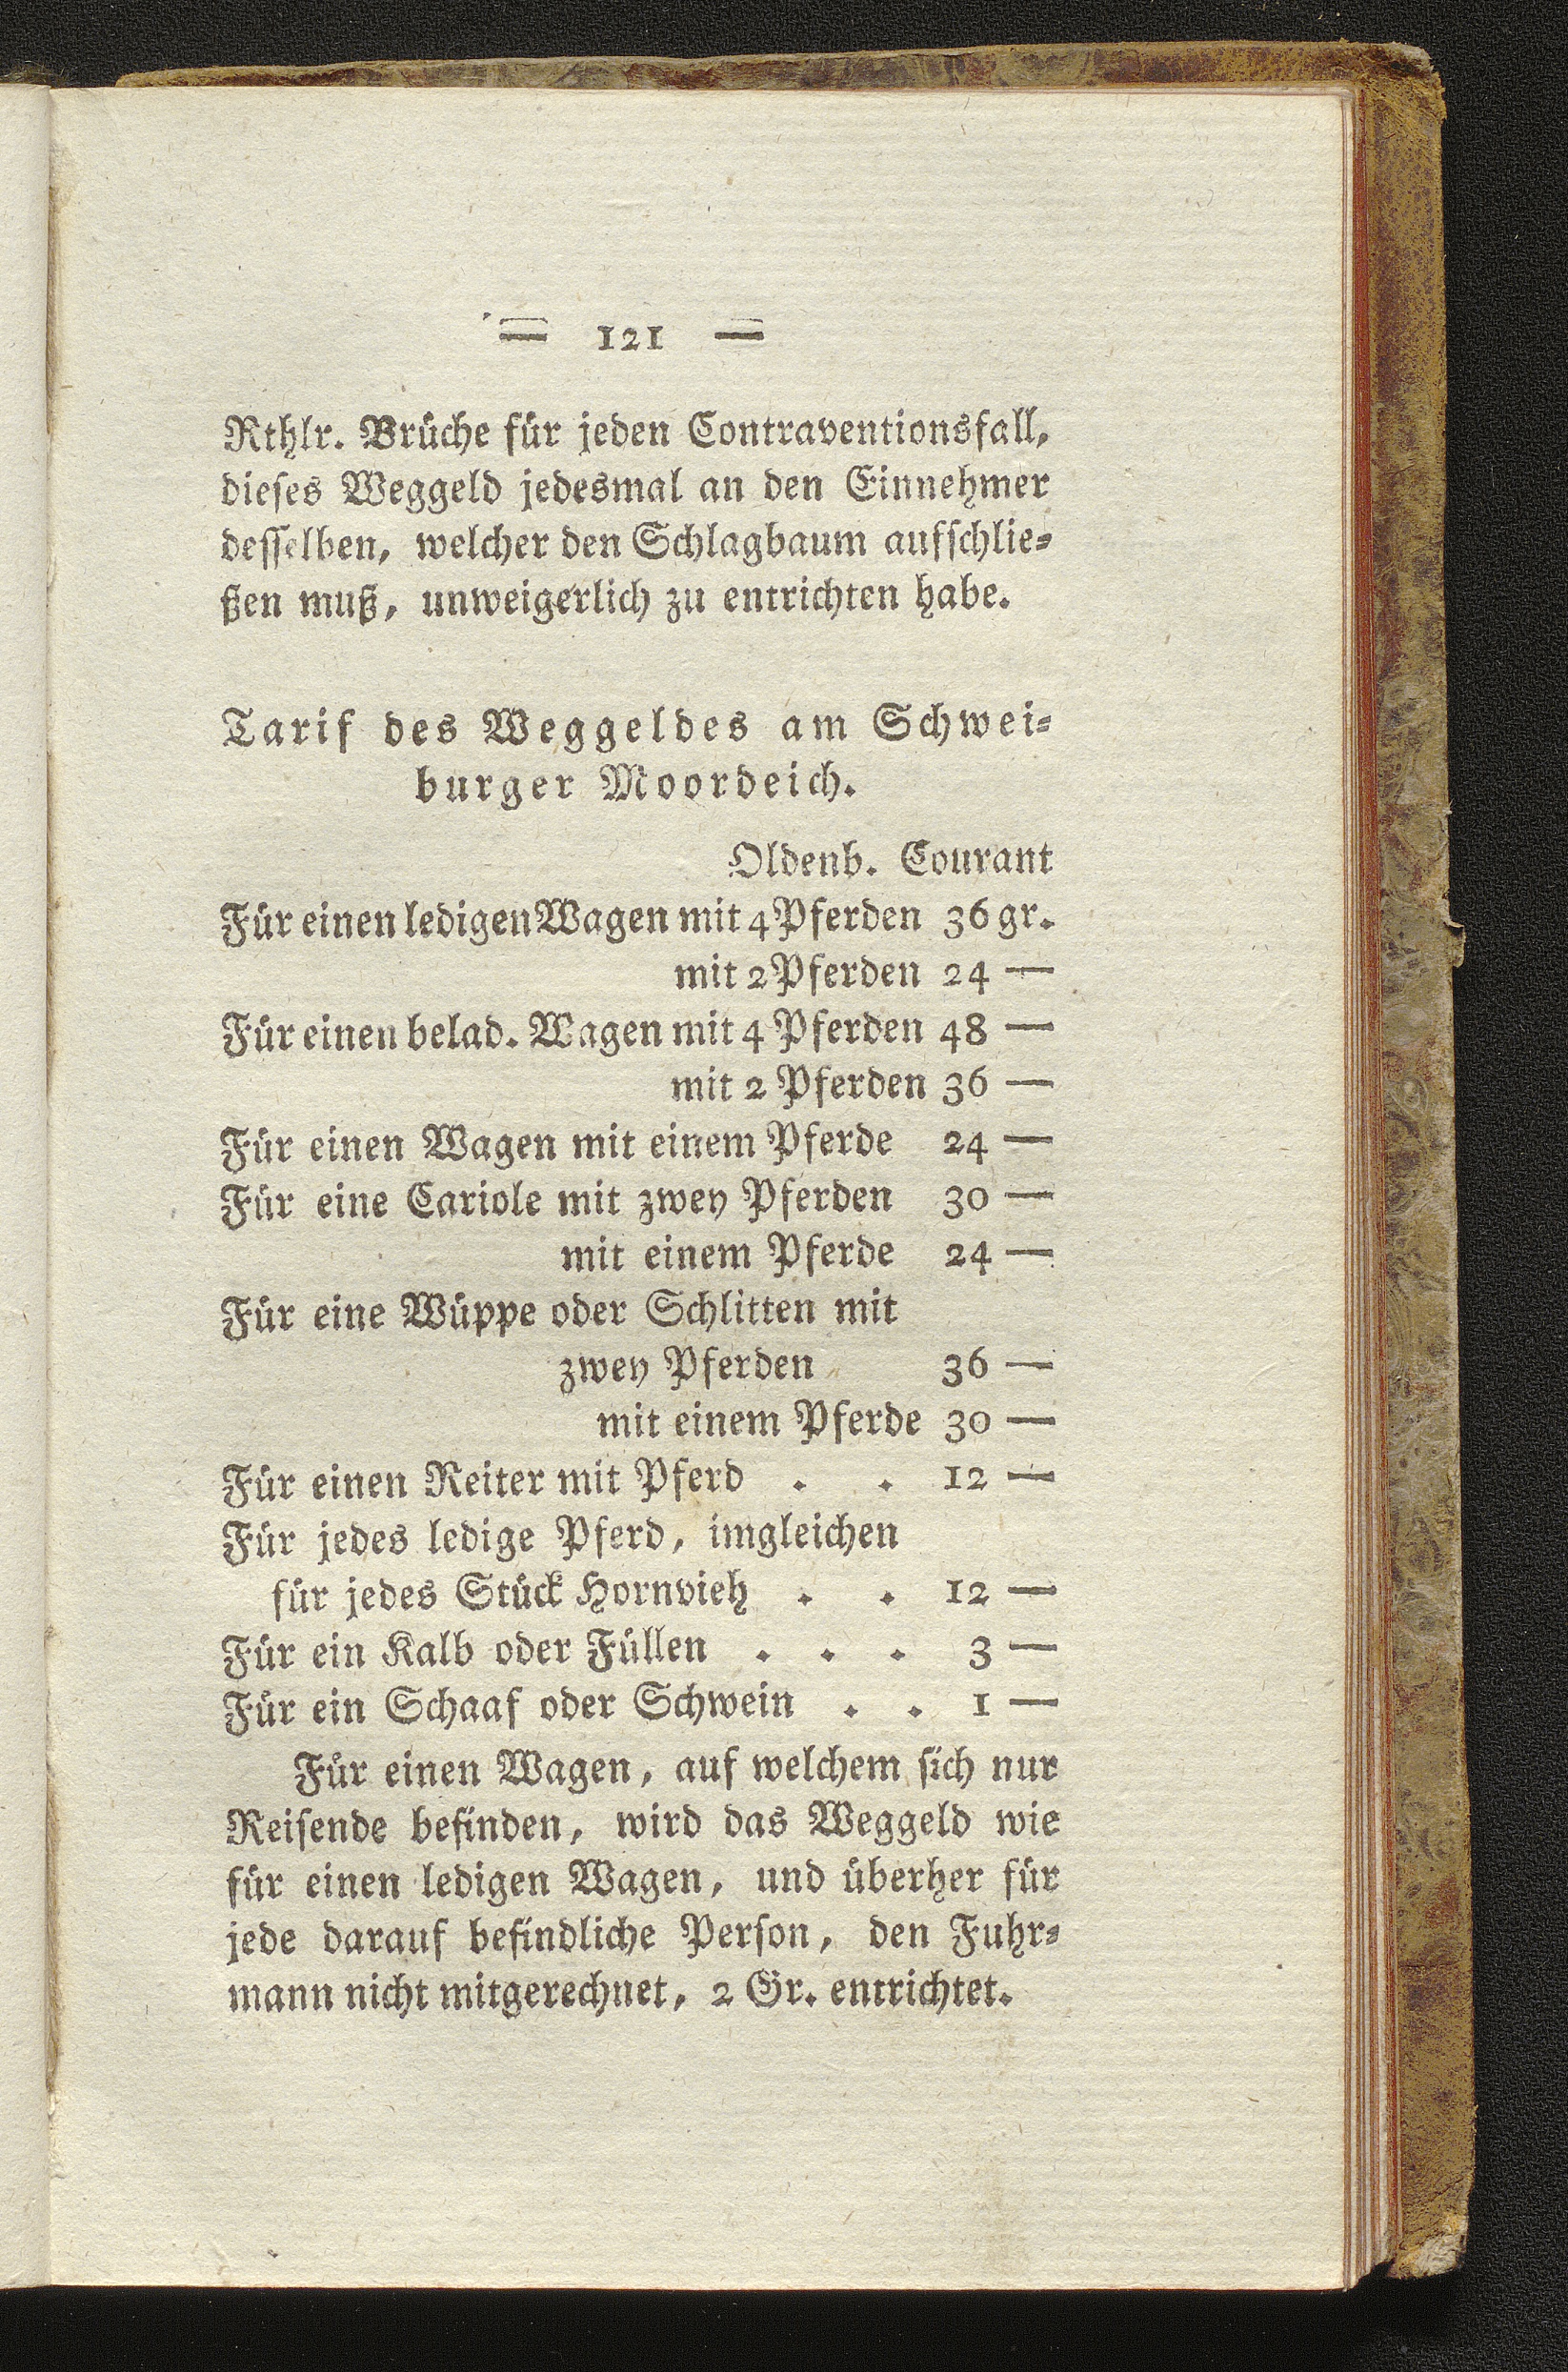 — 121 —
Rthlr. Brüche für jeden Contraventionsfall,
dieses Weggeld jedesmal an den Einnehmer
desselben, welcher den Schlagbaum aufschlie-
ßen muß, unweigerlich zu entrichten habe.
Tarif des Weggeldes am Schwei-
burger Moordeich.
Oldenb. Courant
Für einen ledigen Wagen mit 4 Pferden 36 gr.
mit 2 Pferden 24 —
Für einen belad. Wagen mit 4 Pferden 48 —
mit 2 Pferden 36 —
Für einen Wagen mit einem Pferde 24 —
Für eine Cariole mit zwey Pferden 30 —
mit einem Pferde 24 —
Für eine Wüppe oder Schlitten mit
zwey Pferden 36 —
mit einem Pferde 30 —
Für einen Reiter mit Pferd . . 12 —
Für jedes ledige Pferd, imgleichen
für jedes Stück Hornvieh . . 12 —
Für ein Kalb oder Füllen . . . 3 —
Für ein Schaaf oder Schwein . . 1 —
Für einen Wagen, auf welchem sich nur
Reisende befinden, wird das Weggeld wie
für einen ledigen Wagen, und überher für
jede darauf befindliche Person, den Fuhr-
mann nicht mitgerechnet, 2 Gr. entrichtet.